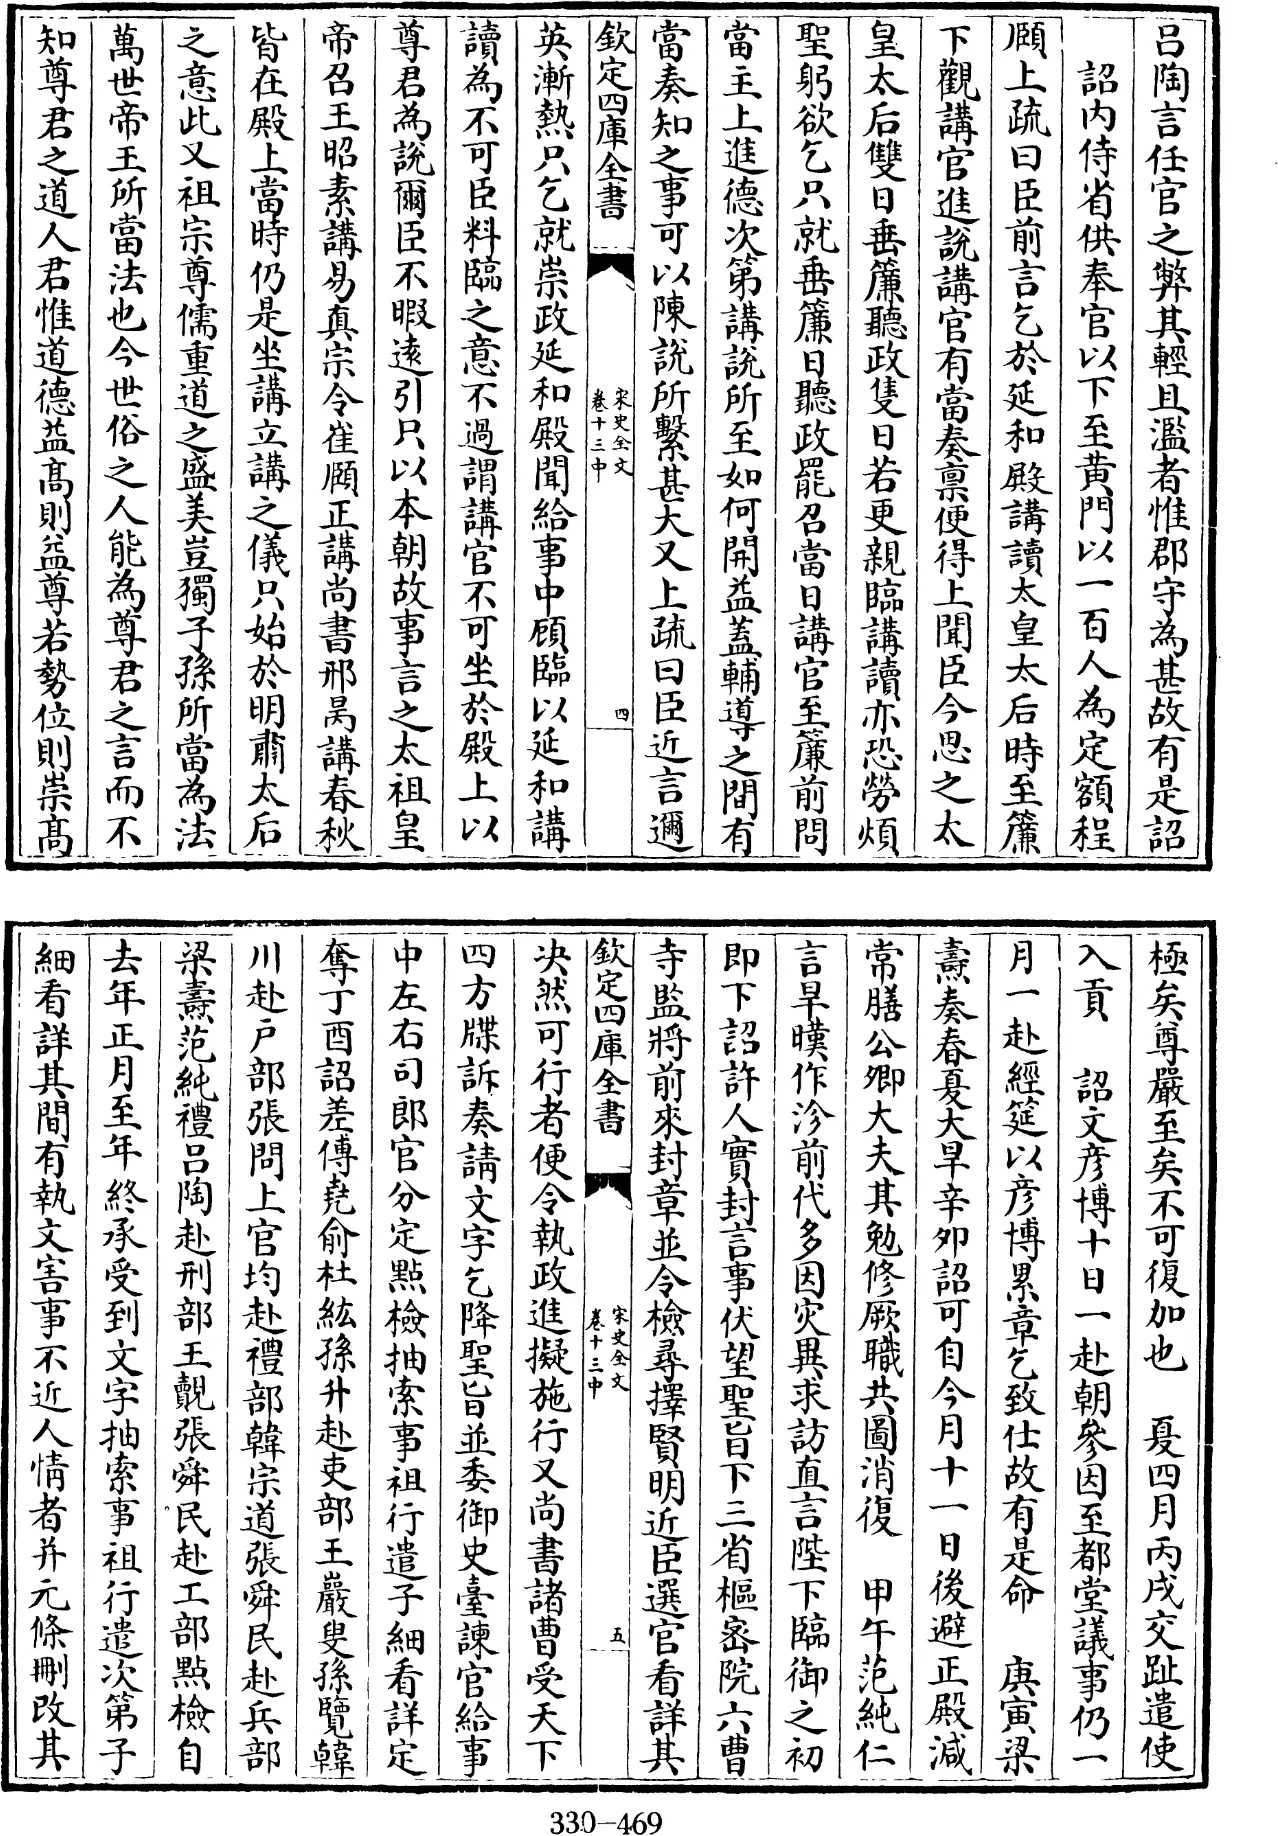 吕陶言任官之弊其輕且濫者惟郡守為甚故有是詔
詔内侍省供奉官以下至黄門以一百人為定額程
頤上疏曰臣前言乞於延和殿講讀太皇太后時至簾
下觀講官進説講官有當奏禀便得上聞臣今思之太
皇太后雙日垂簾聽政隻日若更親臨講讀亦恐勞煩
聖躬欲乞只就垂簾日聽政罷召當日講官至簾前問
當主上進德次第講説所至如何開益蓋輔導之間有
當奏知之事可以陳說所繫甚大又上疏曰臣近言邇
欽定四庫全書
宋史全文
卷十三中
四
英漸熱只乞就崇政延和殿聞給事中顧臨以延和講
讀為不可臣料臨之意不過謂講官不可坐於殿上以
尊君為説爾臣不暇逺引只以本朝故事言之太祖皇
帝召王昭素講易真宗令崔頤正講尚書邢昺講春秋
皆在殿上當時仍是坐講立講之儀只始於明肅太后
之意此又祖宗尊儒重道之盛美豈獨子孫所當為法
萬世帝王所當法也今世俗之人能為尊君之言而不
知尊君之道人君惟道德益髙則益尊若勢位則崇髙
極矣尊嚴至矣不可復加也　夏四月丙戌交趾遣使
入貢　詔文彦博十日一赴朝參因至都堂議事仍一
月一赴經筵以彦博累章乞致仕故有是命　庚寅梁
燾奏春夏大旱辛卯詔可自今月十一日後避正殿減
常膳公卿大夫其勉修厥職共圖消復　甲午范純仁
言旱暵作沴前代多因灾異求訪直言陛下臨御之初
即下詔許人實封言事伏望聖旨下三省樞宻院六曹
寺監將前來封章並令檢尋擇賢明近臣選官看詳其
欽定四庫全書
宋史全文
卷十三中
五
决然可行者便令執政進擬施行又尚書諸曹受天下
四方牒訴奏請文字乞降聖旨並委御史臺諫官給事
中左右司郎官分定點檢抽索事祖行遣子細看詳定
奪丁酉詔差傅堯俞杜紘孫升赴吏部王巖叟孫覽韓
川赴戸部張問上官均赴禮部韓宗道張舜民赴兵部
梁燾范純禮吕陶赴刑部王覿張舜民赴工部點檢自
去年正月至年終承受到文字抽索事祖行遣次第子
細看詳其間有執文害事不近人情者并元條刪改其
330-469